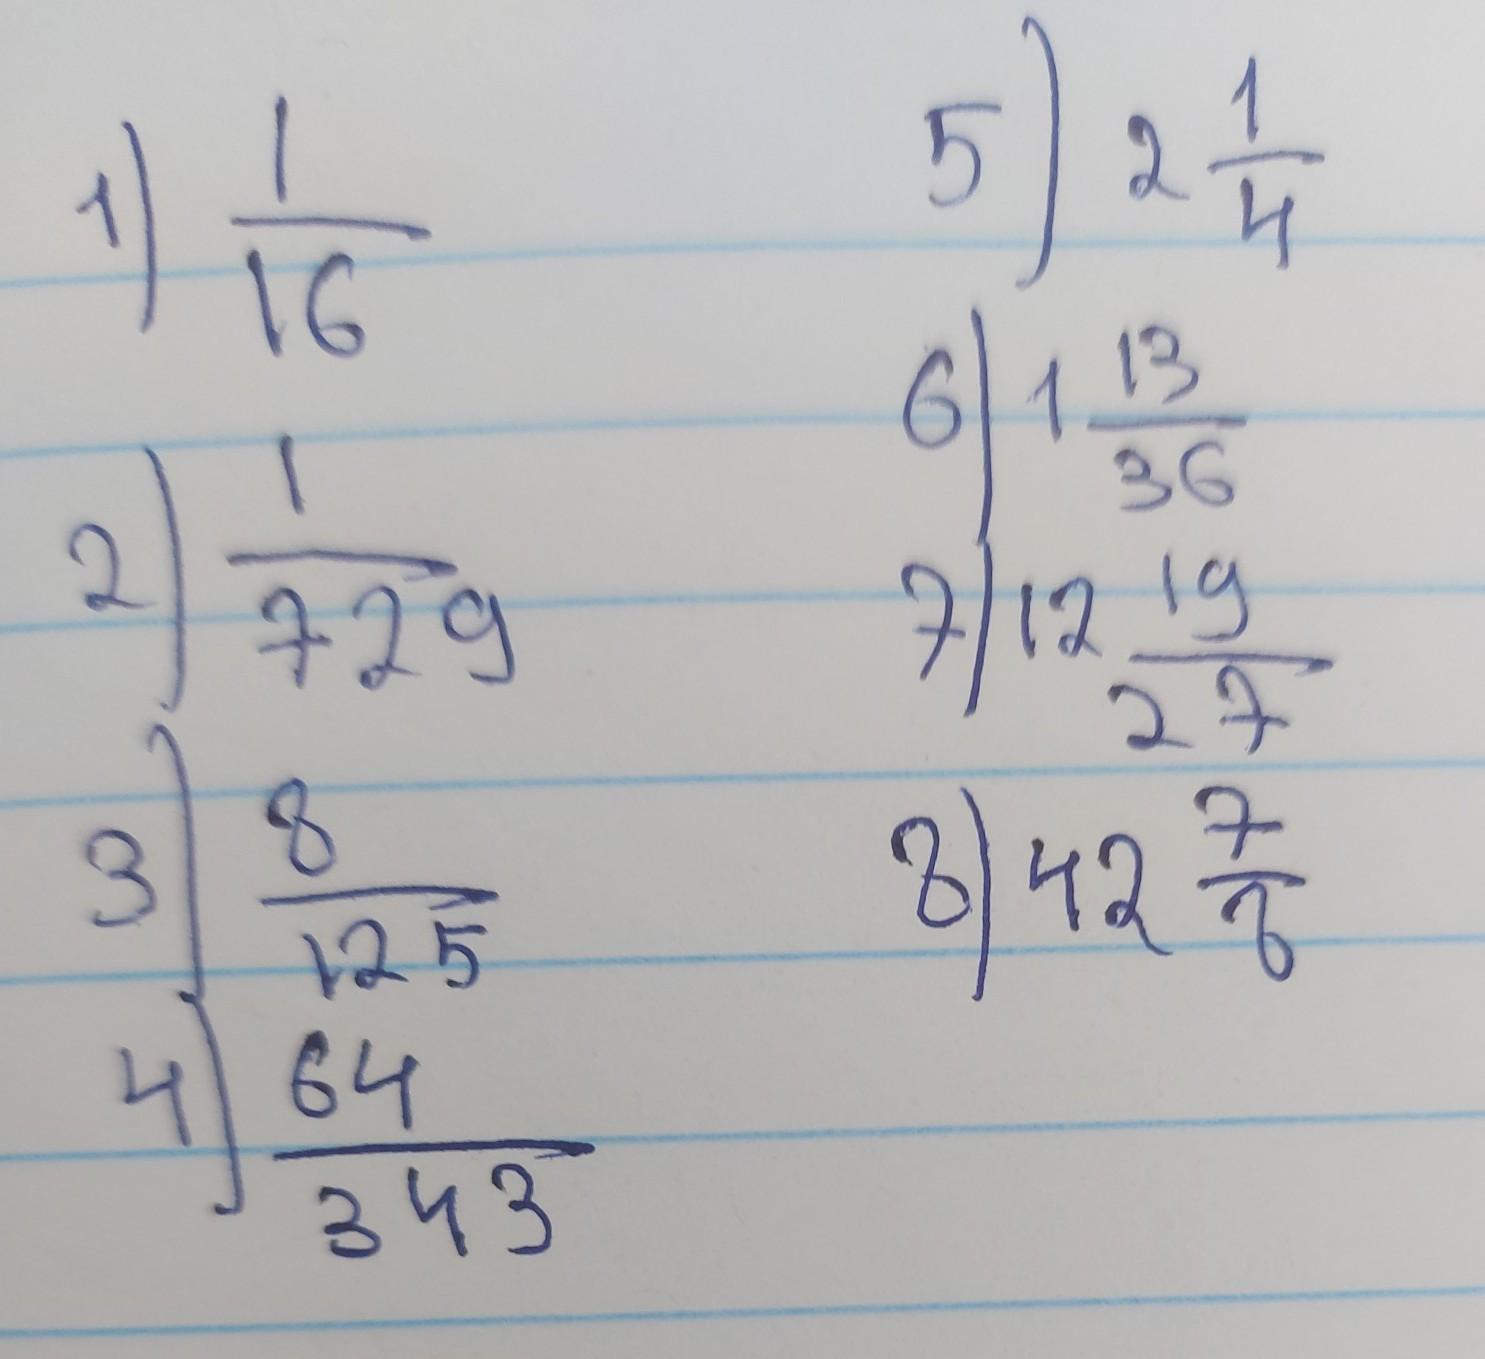 1) 1/16
2) 1/729
3) 8/125
4) 64/343
5) 2 1/4
6) 1 13/36
7) 12 19/27
8) 42 7/8